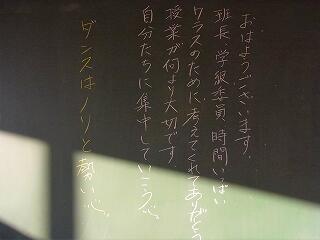 おはようございます。
班長、学級委員、時間いっぱい
クラスのために考えてくれてありがとう
授業が何より大切です
自分たちに集中していこう。
ダンスはノリと勢い